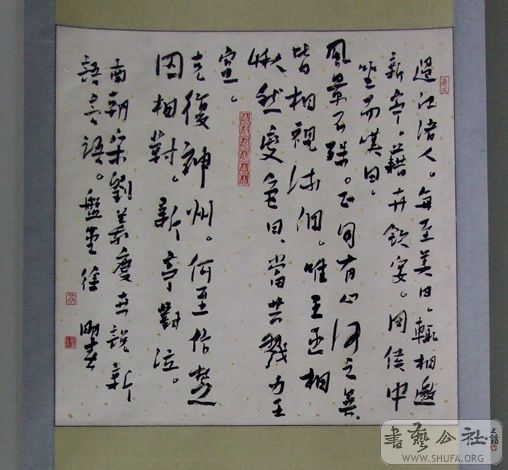 過江諸人。每至美日。輒相邀
新亭。藉卉飲宴。周侯中
坐而嘆曰。
風景不殊。正自有山河之異。
皆相視流泪。唯王丞相
愀然變色曰、當共戮力王
室。
克復神州。何至作楚
囚相對。新亭對泣。
南朝宋劉義慶世說新
語言語。徐
書藝公社
WWW.SHUFA.ORG